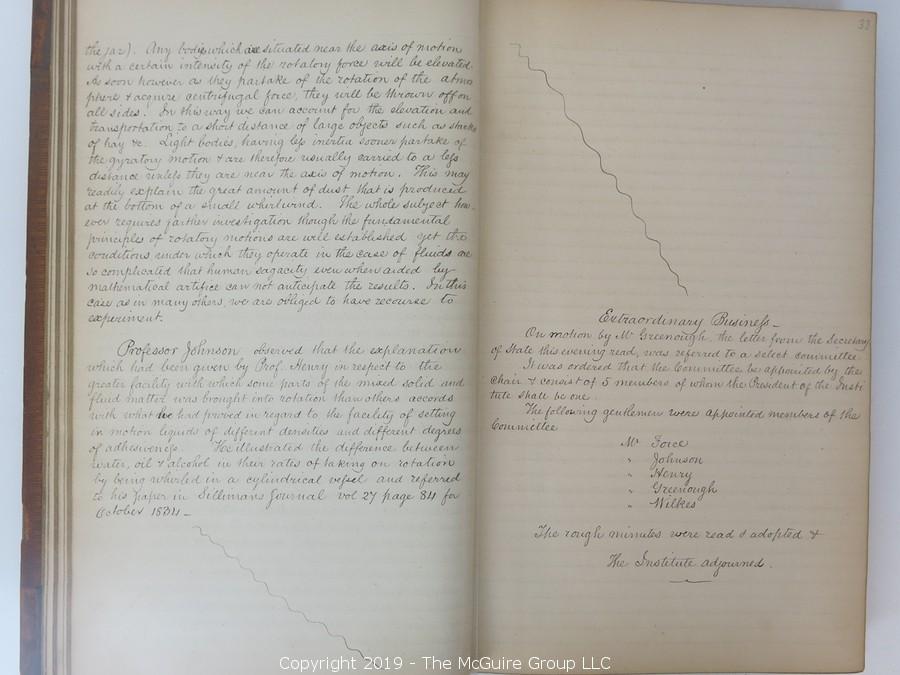 the jar). Any body which is situated near the axis of motion
with a certain intensity of the rotatory force will be elevated.
As soon however as they partake of the rotation of the atmos
phere & acquire centrifugal force, they will be thrown off on
all sides. In this way we can account for the elevation and
transportation to a short distance of large objects such as stacks
of hay &c. Light bodies, having less inertia sooner partake of
the gyratory motion & are therefore usually carried to a less
distance unless they are near the axis of motion. This may
readily explain the great amount of dust that is produced
at the bottom of a small whirlwind. The whole subject how-
ever requires farther investigation though the fundamental
principles of rotatory motions are well established yet the
conditions under which they operate in the case of fluids are
so complicated that human sagacity even when aided by
mathematical artifice can not anticipate the results. In this
case as in many others, we are obliged to have recourse to
experiment.
Professor Johnson observed that the explanation
which had been given by Prof. Henry in respect to the
greater facility with which some parts of the mixed solid and
fluid matter was brought into rotation than others accords
with what he had proved in regard to the facility of setting
in motion liquids of different densities and different degrees
of adhesiveness. He illustrated the difference between
water, oil & alcohol in their rates of taking on rotation
by being whirled in a cylindrical vessel and referred
to his paper in Silliman's Journal vol 27 page 84 for
October 1834 -
33
Extraordinary Business -
On motion by Mr Greenough, the letter from the Secretary
of State this evening read, was referred to a select committee.
It was ordered that the Committee be appointed by the
Chair & consist of 5 members of whom the President of the Insti
tute shall be one.
The following gentlemen were appointed members of the
Committee
Mr Force
" Johnson
" Henry
" Greenough
" Wilkes
The rough minutes were read & adopted &
The Institute adjourned.
Copyright 2019 - The McGuire Group LLC